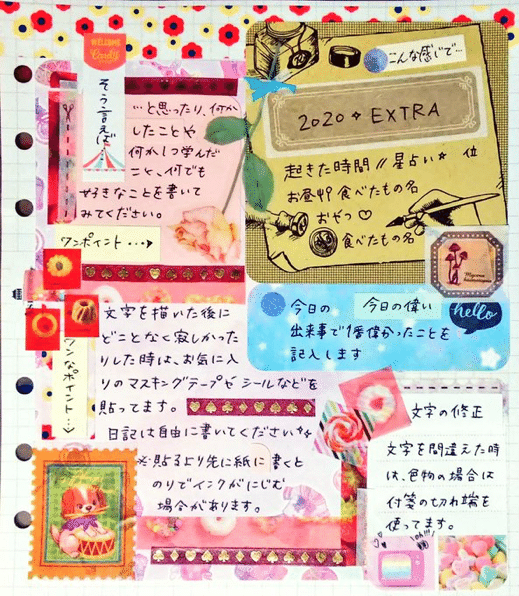 WELCOME
Candy
そう言えば
…と思ったり、何か
したことや
何か1つ学んだ
こと、何でも
好きなことを書いて
みてください。
ワンポイント…→
こんな感じで…
2020 EXTRA
起きた時間 // 星占い☆ 位
お昼 食べたもの名
おやつ♡
食べたもの名
今日の 今日の偉い
hello
出来事で1番偉かったことを
記入します
文字を描いた後に
どことなく寂しかった
りした時は、お気に入
りのマスキングテープやシールなどを
貼ってます。
日記は自由に書いてください
ワンポイント…→
※貼るより先に紙に書くと
のりでインクがにじむ
場合があります。
文字の修正
文字を間違えた時
は、色物の場合は
付箋の切れ端を
使ってます。
oh!!!